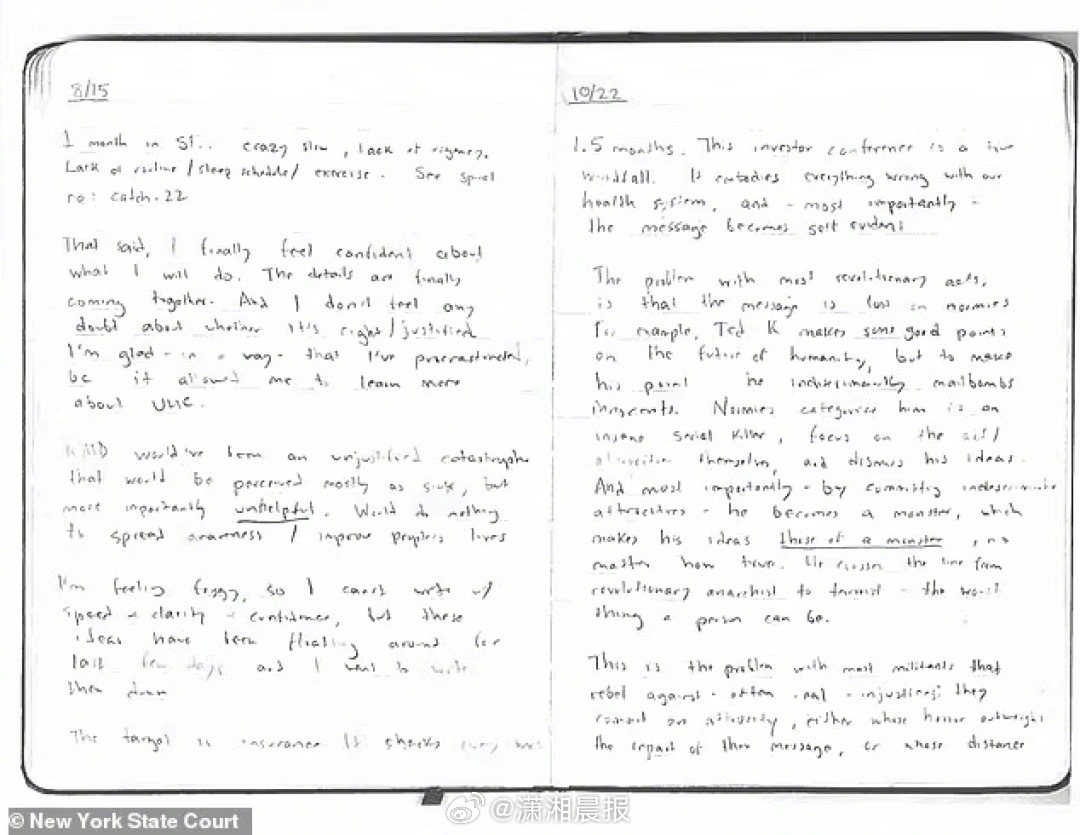 8/15
1 month in ST.. crazy slow, lack of
Lack of routine / sleep schedule / exercise. See spiel
re: catch-22
That said, I finally feel confident about
what I will do. The details are finally
coming together. And I don't feel any
doubt about whether it's right/justified
I'm glad - in a way - that I've procrastinated,
bc it allowed me to learn more
about UHC.
would've been an unjustified catastrophe
that would be perceived mostly as sick, but
more importantly unhelpful. Would do nothing
to spread awareness / improve people's lives
I'm feeling foggy, so I can't write w/
speed + clarity + confidence, but these
ideas have been floating around for
last few days and I want to write
them down
The target is insurance It checks every box
10/22
1.5 months. This investor conference is a true
windfall. It embodies everything wrong with our
health system, and - most importantly -
the message becomes self evident
The problem with most revolutionary acts,
is that the message is lost on normies
For example, Ted K makes some good points
on the future of humanity, but to make
his point he indiscriminantly mailbombs
innocents. Normies categorize him as an
insane serial killer, focus on the act/
themselves, and dismiss his ideas.
And most importantly - by committing indiscriminate
- he becomes a monster, which
makes his ideas those of a monster, no
matter how true. He crosses the line from
revolutionary anarchist to terrorist - the worst
thing a person can be.
This is the problem with most militants that
rebel against - often real - injustices: they
commit an atrocity, either whose horror outweighs
the impact of their message, or whose distance
© New York State Court
@潇湘晨报